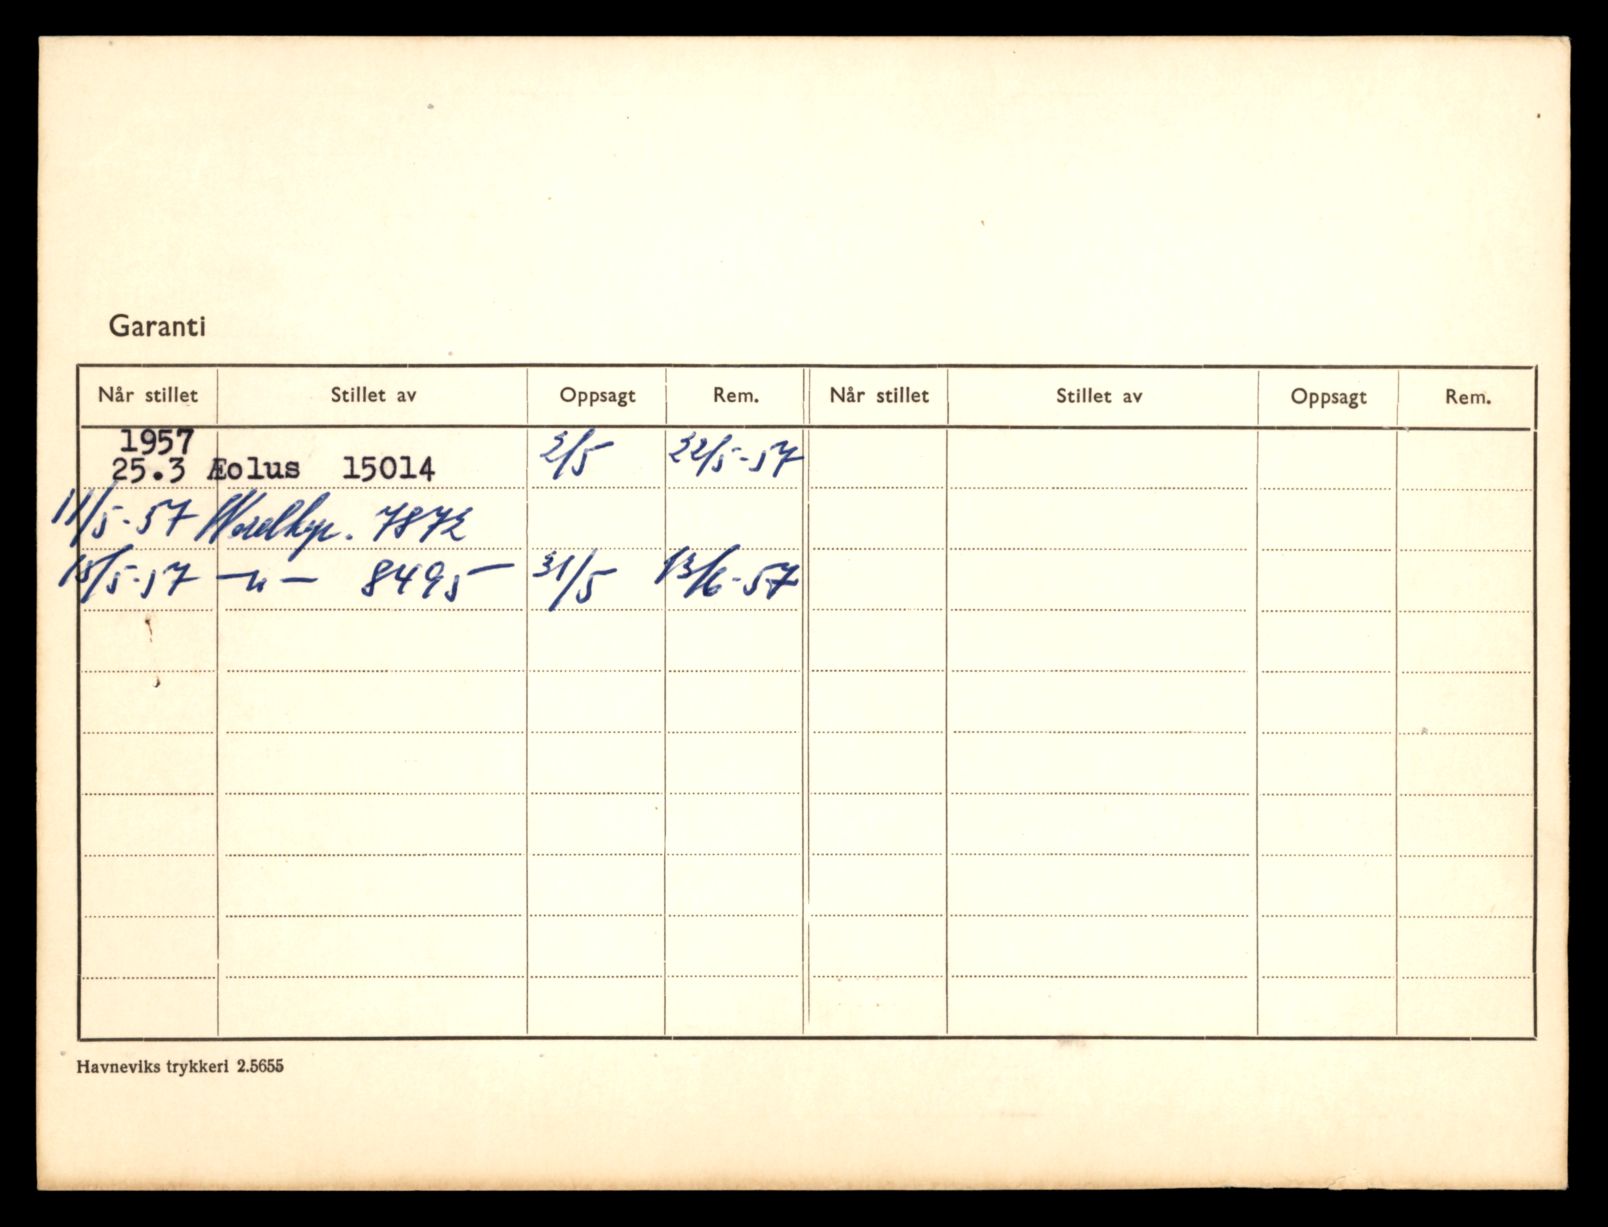 Garanti
Når stillet Stillet av Oppsagt Rem. Når stillet Stillet av Oppsagt Rem.
1957
25.3 Æolus 15014 2/5 22/5-57
11/5-57 7872
15/5-57 -"- 8495 31/5 13/6-57
Havneviks trykkeri 2.5655